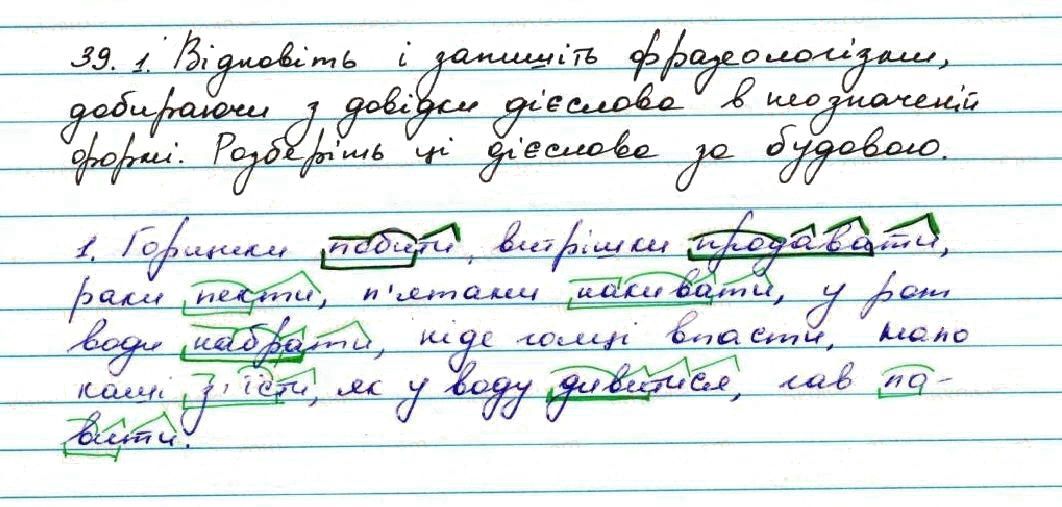 39. 1. Відновіть і запишіть фразеологізми,
добираючи з довідки дієслова в неозначеній
формі. Розберіть ці дієслова за будовою.
1. Горшики побити, витрішки продавати,
раки пекти, п'ятами накивати, у рот
води набрати, ніде голці впасти, мало
каші з'їсти, як у воду дивитися, лав па-
вити.